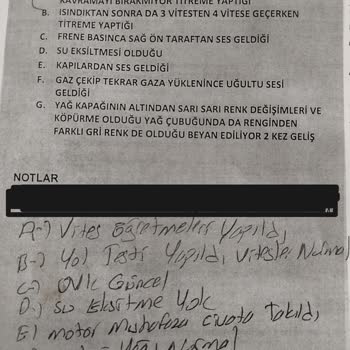 KAVRAMAYI BIRAKMIYOR TİTREME YAPTIĞI
B. ISINDIKTAN SONRA DA 3 VİTESTEN 4 VİTESE GEÇERKEN
TİTREME YAPTIĞI
C. FRENE BASINCA SAĞ ÖN TARAFTAN SES GELDİĞİ
D. SU EKSİLTMESİ OLDUĞU
E. KAPILARDAN SES GELDİĞİ
F. GAZ ÇEKİP TEKRAR GAZA YÜKLENİNCE UĞULTU SESİ
GELDİĞİ
G. YAĞ KAPAĞININ ALTINDAN SARI SARI RENK DEĞİŞİMLERİ VE
KÖPÜRME OLDUĞU YAĞ ÇUBUĞUNDA DA RENGİNDEN
FARKLI GRİ RENK DE OLDUĞU BEYAN EDİLİYOR 2 KEZ GELİŞ
NOTLAR
A-) Vites Öğretmeleri Yapıldı,
B-) Yol Testi Yapıldı, Vitesler Normal
C-) Güncel
D-) Su Eksiltme Yok
E) motor Muhafaza civata Takıldı,
Normal